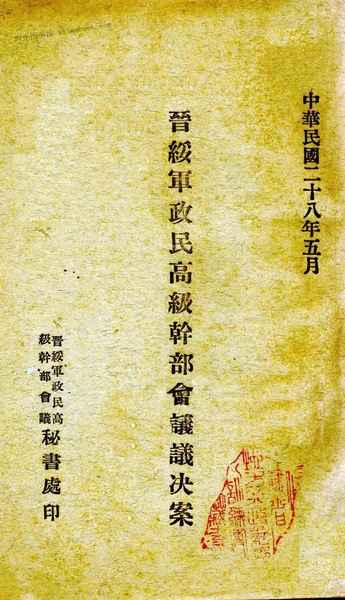 中華民國二十八年五月
晉綏軍政民高級幹部會議議决案
晉綏軍政民高
級幹部會議
秘書處印